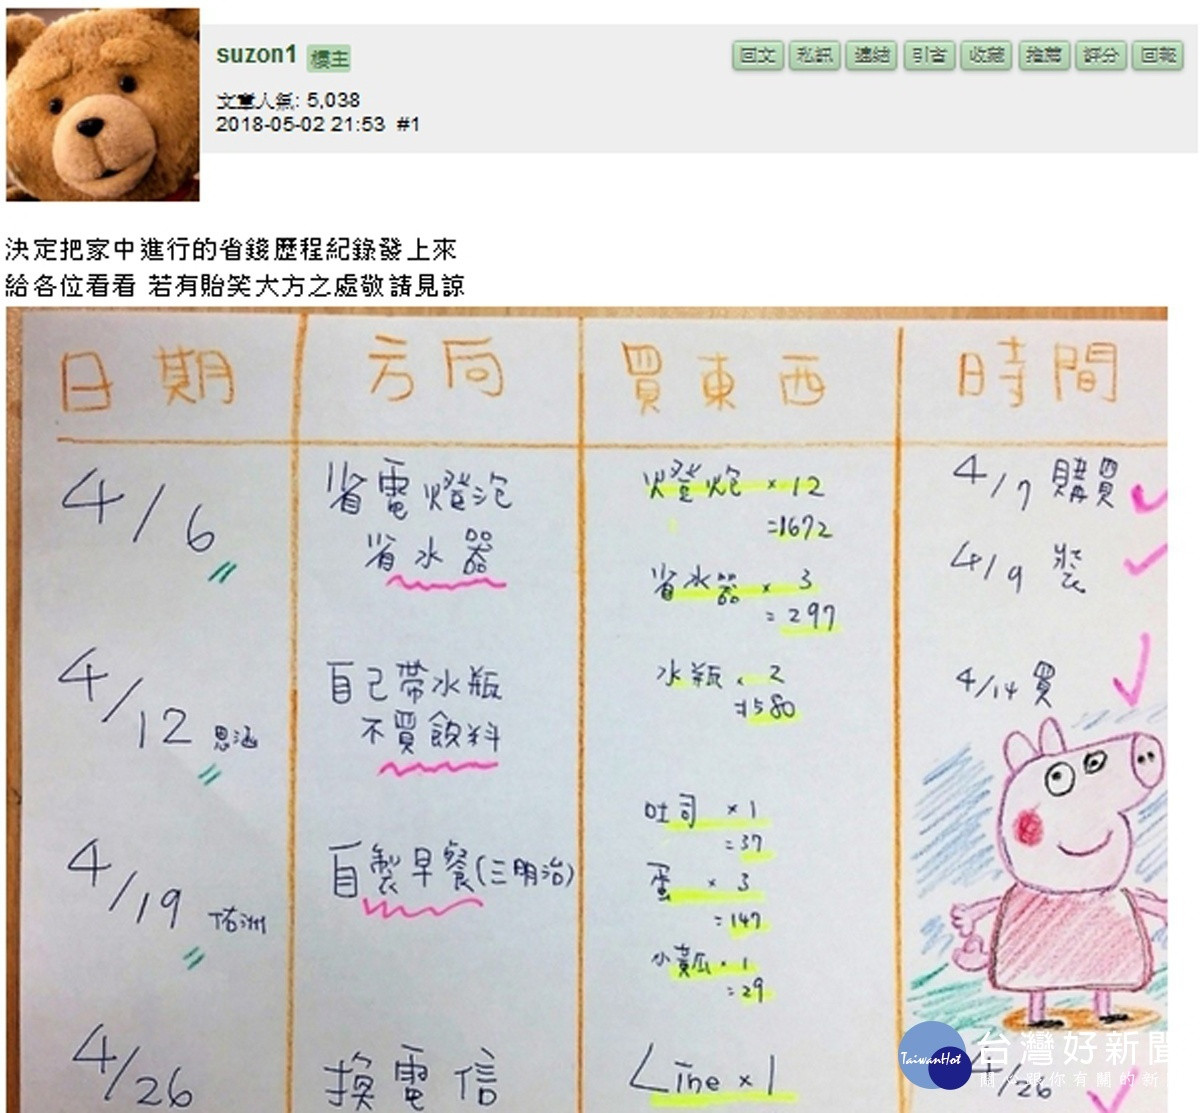 suzon1 樓主
回文 私訊 連結 引言 收藏 推薦 評分 回報
文章人氣: 5,038
2018-05-02 21:53 #1
決定把家中進行的省錢歷程紀錄發上來
給各位看看 若有貽笑大方之處敬請見諒
日期 方向 買東西 時間
4/6 省電燈泡 省水器
火燈炮 × 12
=1672
省水器 × 3
=297
4/7 購買
4/9 裝
4/12 恩涵
自己帶水瓶
不買飲料
水瓶 × 2
=1580
4/14 買
4/19 祐洲
自製早餐(三明治)
吐司 × 1
=37
蛋 × 3
=147
小黃瓜 × 1
=29
4/26 換電信 Line × 1 4/26
TaiwanHot 台灣好新聞
關心跟你有關的新